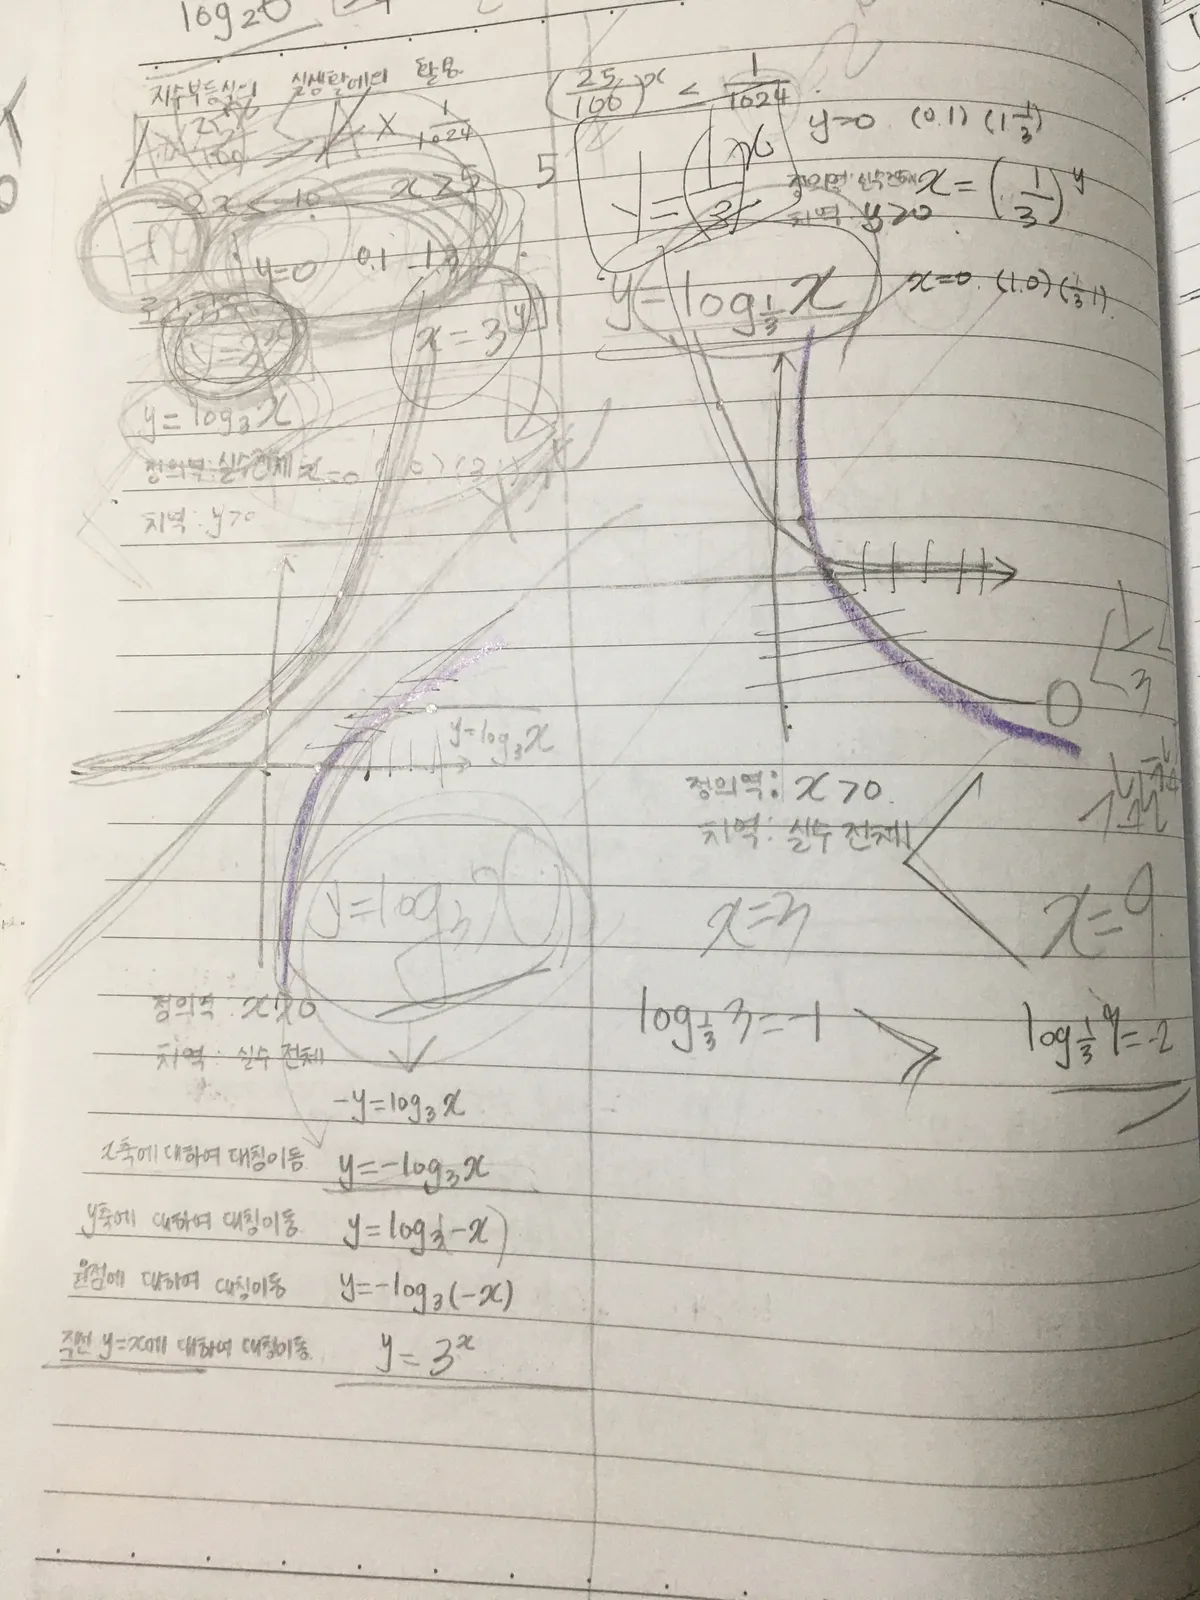 log₂6
지수부등식의 실생활에의 활용
A × 25/100 A × 1/1024
-2x < -10 x ≥ 5 5
y=0 0.1 1.3
x = 3^y
y = log₃x
정의부: 실수전체 x=0
치역: y>0
y=log₃x
y=log₃x
정의역: x>0
치역: 실수 전체
-y=log₃x
x축에 대하여 대칭이동 y=-log₃x
y축에 대하여 대칭이동 y=log₃(-x)
원점에 대하여 대칭이동 y=-log₃(-x)
직선 y=x에 대하여 대칭이동 y=3^x
(25/100)^x < 1/1024
y=(1/3)^x y=0 (0.1) (1 1/3)
정의역: 실수전체 x=(1/3)^y
치역: y>0
y=log_{1/3}x x=0. (1.0) (1/3 1).
0
1/3
정의역: x>0.
치역: 실수 전체
x=3 x=9
log_{1/3}3=-1 > log_{1/3}9=-2